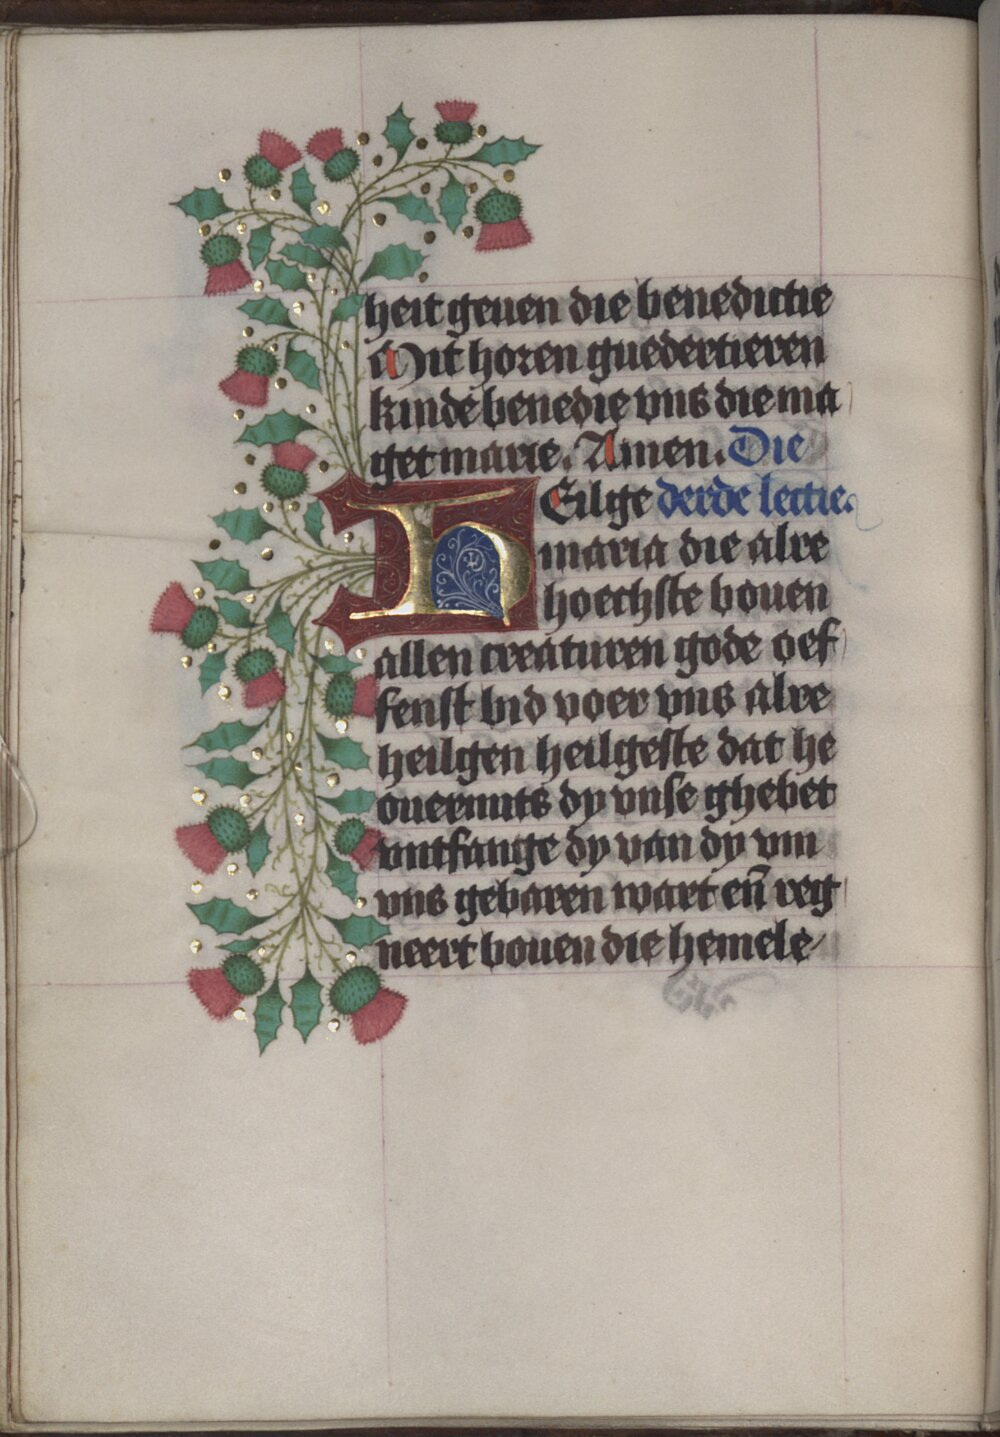 heit geuen die benedictie
Mit horen guedertieren
kinde benedie vns die ma
get marie. Amen. Die
HEilge derde lectie.
maria die alre
hoechste bouen
allen creaturen gode oef
fenst bid voer vns alre
heilgen heilgeste dat he
ouermits dy vnse ghebet
vntfange dy van dy vm
vns gebaren wart en̄ reg
neert bouen die hemele